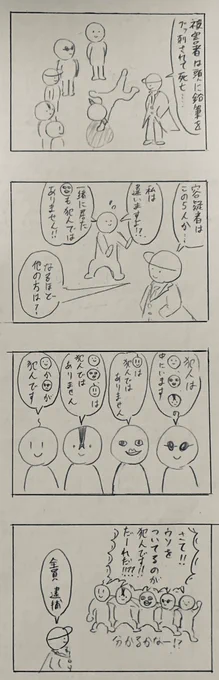 被害者は頭に鉛筆を
ぶっ刺されて死亡…
容疑者は
この5人か…
私は
違いますよ!?
一緒に居た
も犯人では
ありません!!
なるほど…
他の方は?
犯人は
の
中にいます
は
犯人では
ありません
は
犯人では
ありません
か
が
犯人です
さて!!
ウソを
ついてるのが
犯人です!!
だーれだ!!!!
分かるかなー!?
全員逮捕